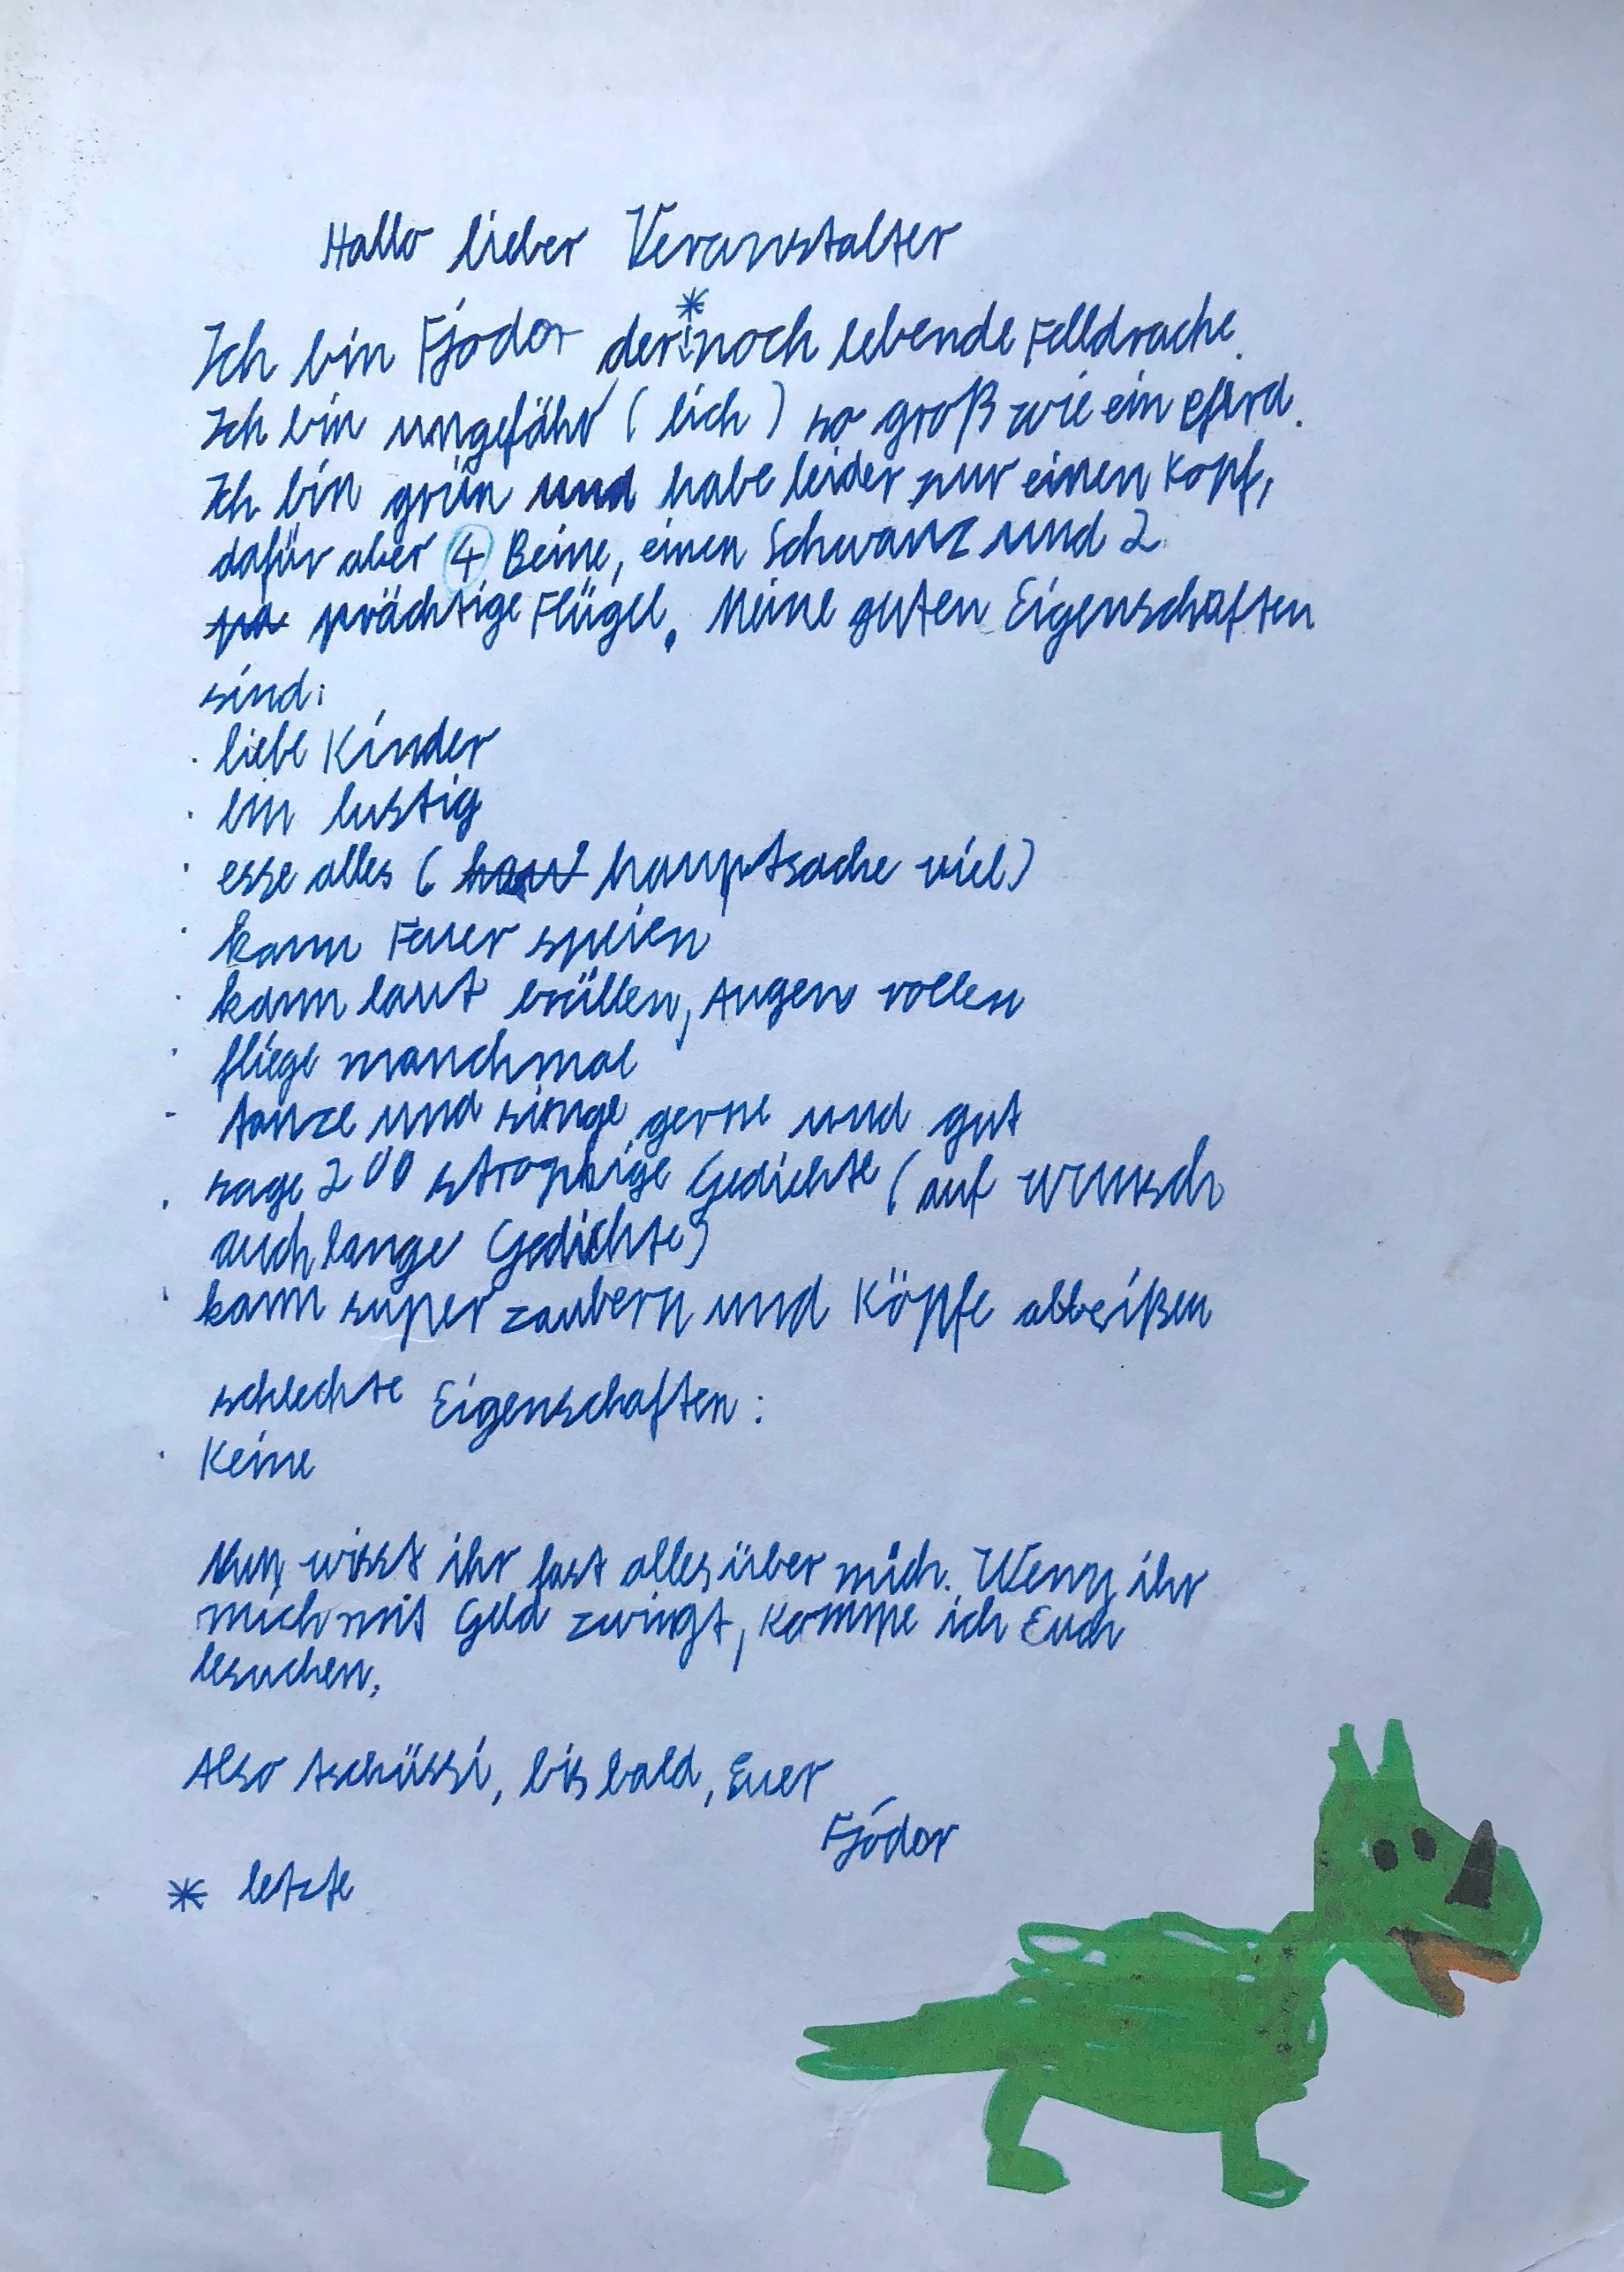 Hallo lieber Veranstalter
*
Ich bin Fjodor der noch lebende Felldrache.
Ich bin ungefähr (lich) so groß wie ein Pferd.
Ich bin grün und habe leider nur einen Kopf,
dafür aber 4 Beine, einen Schwanz und 2
prächtige Flügel. Meine guten Eigenschaften
sind:
· liebe Kinder
· bin lustig
· esse alles (hauptsache viel)
· kann Feuer speien
· kann laut brüllen, Augen rollen
· fliege manchmal
- tanze und singe gerne und gut
· sage 200 strophige Gedichte (auf Wunsch
auch lange Gedichte)
· kann super zaubern und Köpfe abbeißen
schlechte Eigenschaften:
· Keine
Nun wisst ihr fast alles über mich. Wenn ihr
mich mit Geld zwingt, komme ich Euch
besuchen.
Also tschüssi, bis bald, Euer
Fjodor
* letzte